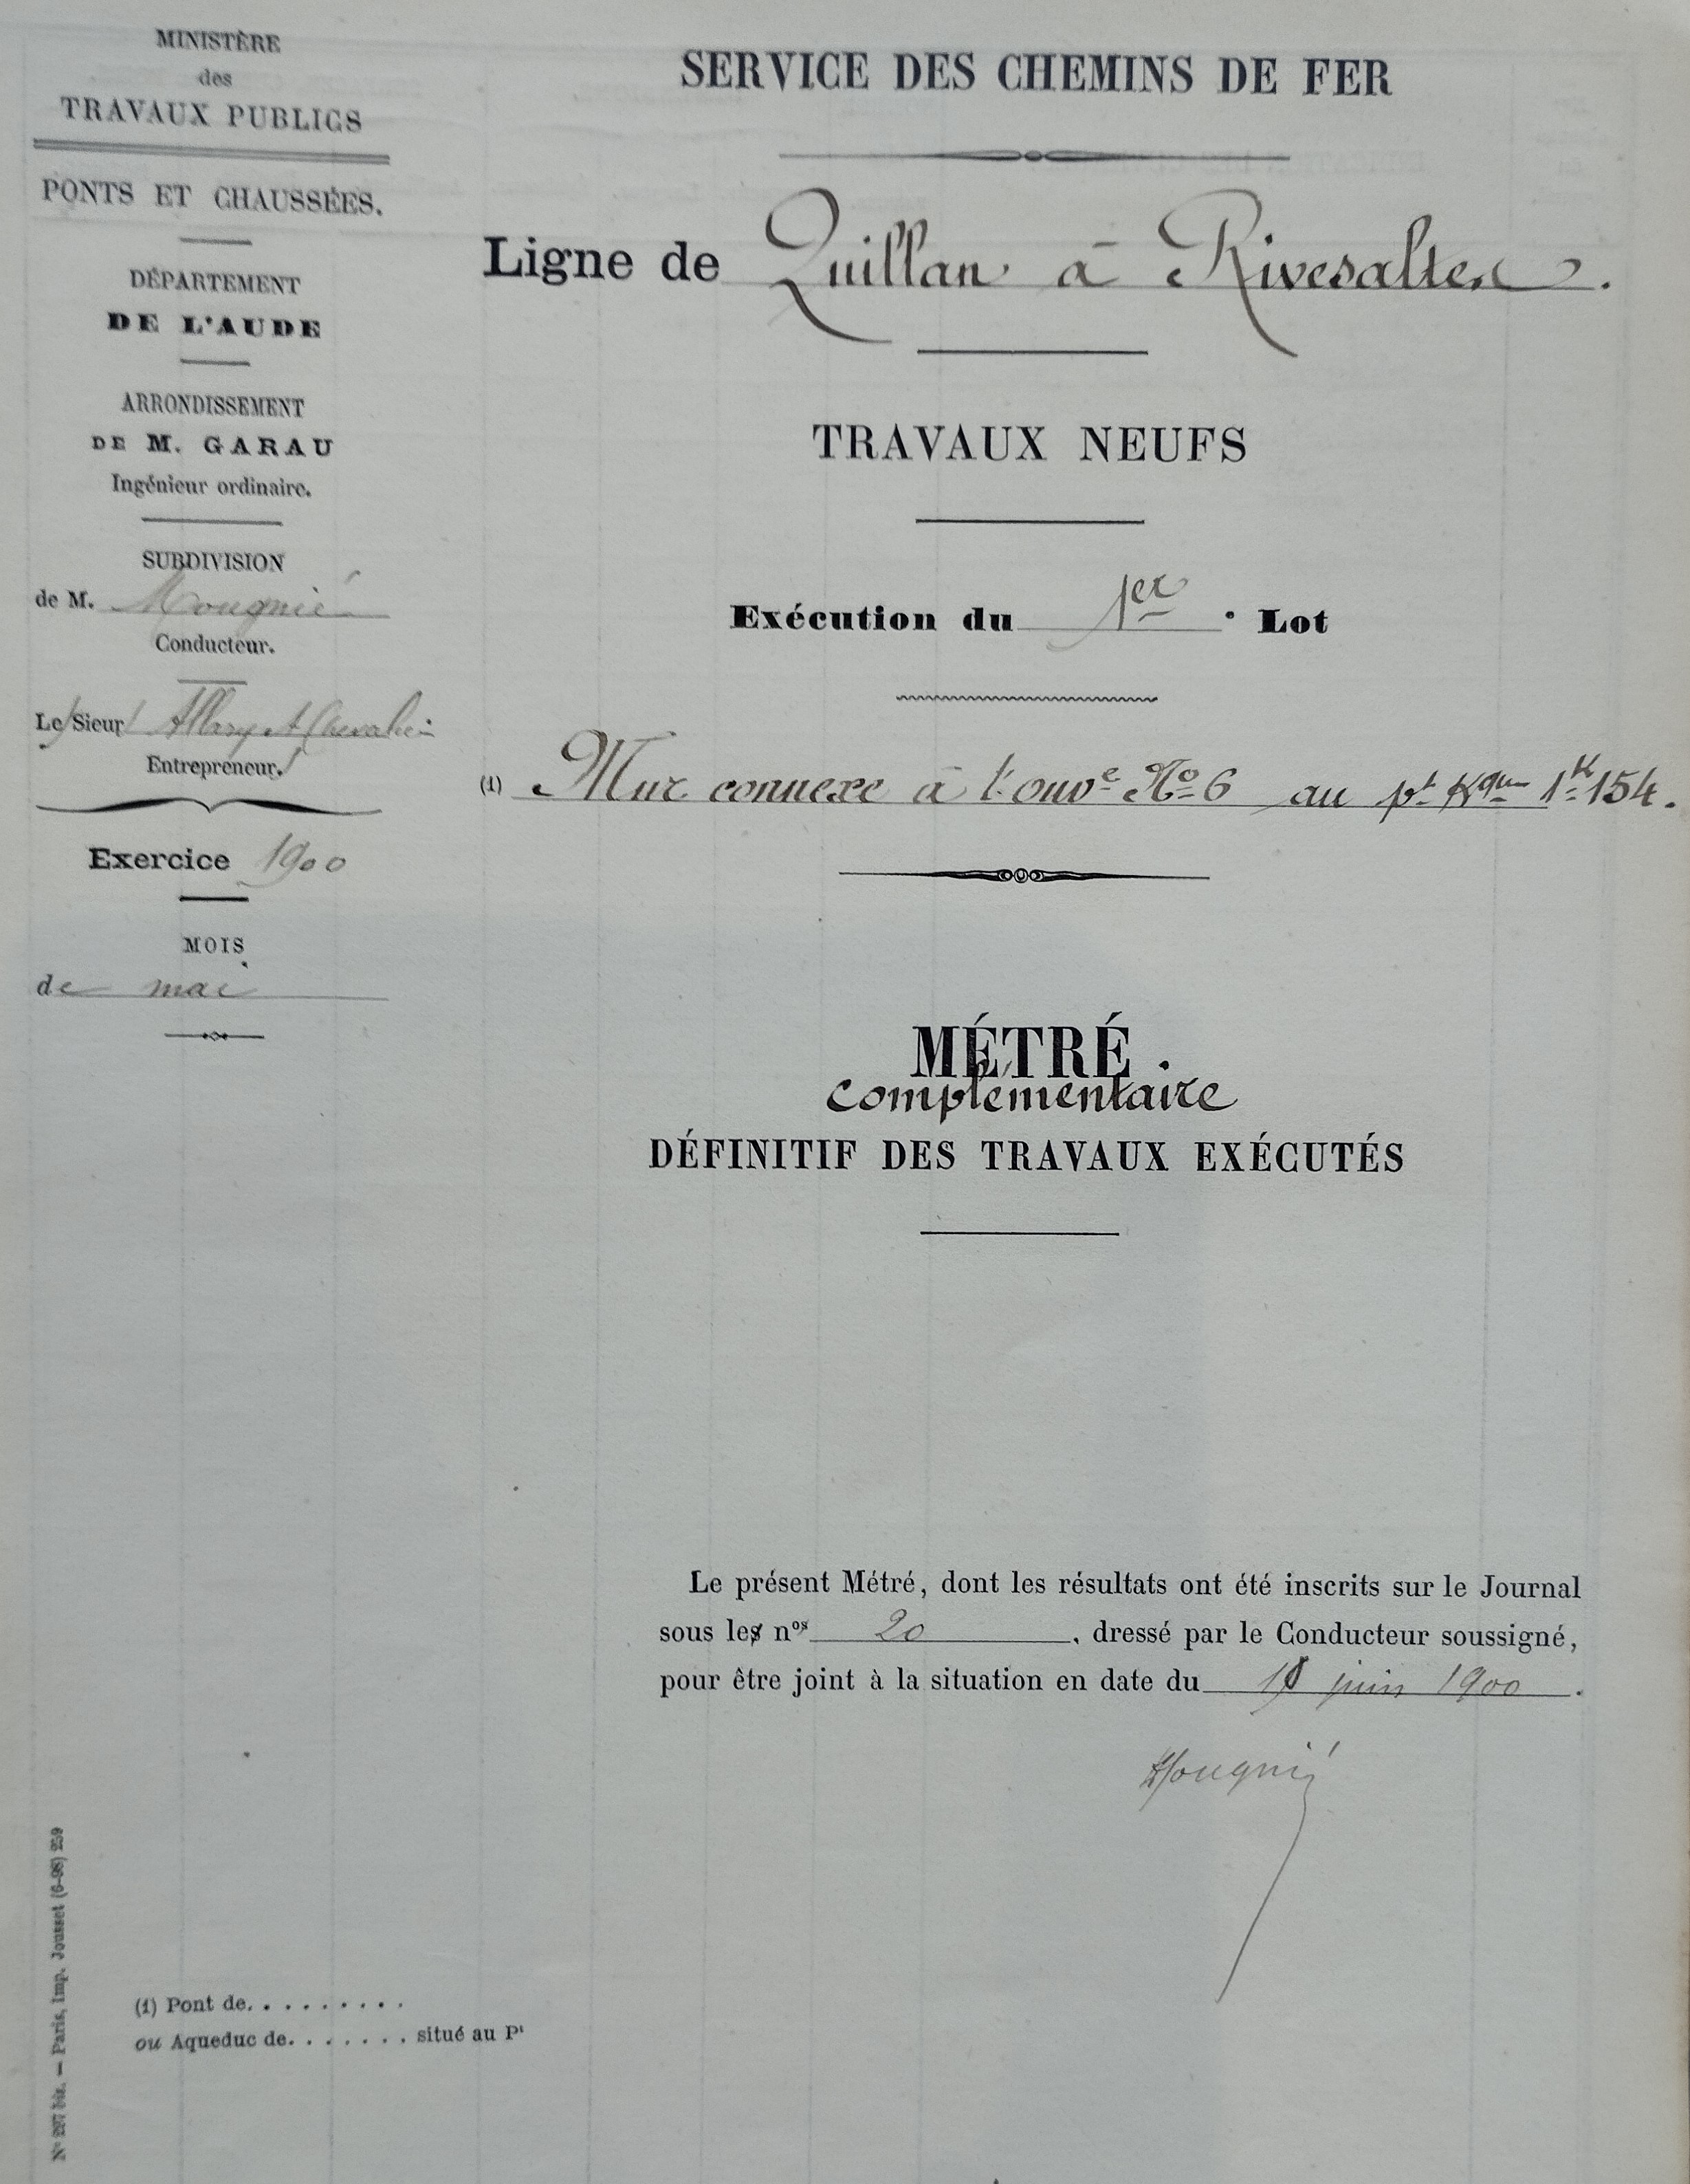 MINISTÈRE
des
TRAVAUX PUBLICS
PONTS ET CHAUSSÉES.
DÉPARTEMENT
DE L'AUDE
ARRONDISSEMENT
DE M. GARAU
Ingénieur ordinaire.
SUBDIVISION
de M. Mougnié
Conducteur.
Le Sieur Allary et Chevalier
Entrepreneur.
Exercice 1900
MOIS
de mai
SERVICE DES CHEMINS DE FER
Ligne de Quillan à Rivesaltes.
TRAVAUX NEUFS
Exécution du 1er Lot
(1) Mur connexe à l'ouve No 6 au pt Kque 1k154.
MÉTRÉ.
complémentaire
DÉFINITIF DES TRAVAUX EXÉCUTÉS
Le présent Métré, dont les résultats ont été inscrits sur le Journal
sous les nos 20, dressé par le Conducteur soussigné,
pour être joint à la situation en date du juin 1900.
Mougnié
(1) Pont de. . . . . . . . .
ou Aqueduc de. . . . . . . situé au Pt
N° 297 bis. — Paris, Imp. Jousset (6-98) 259